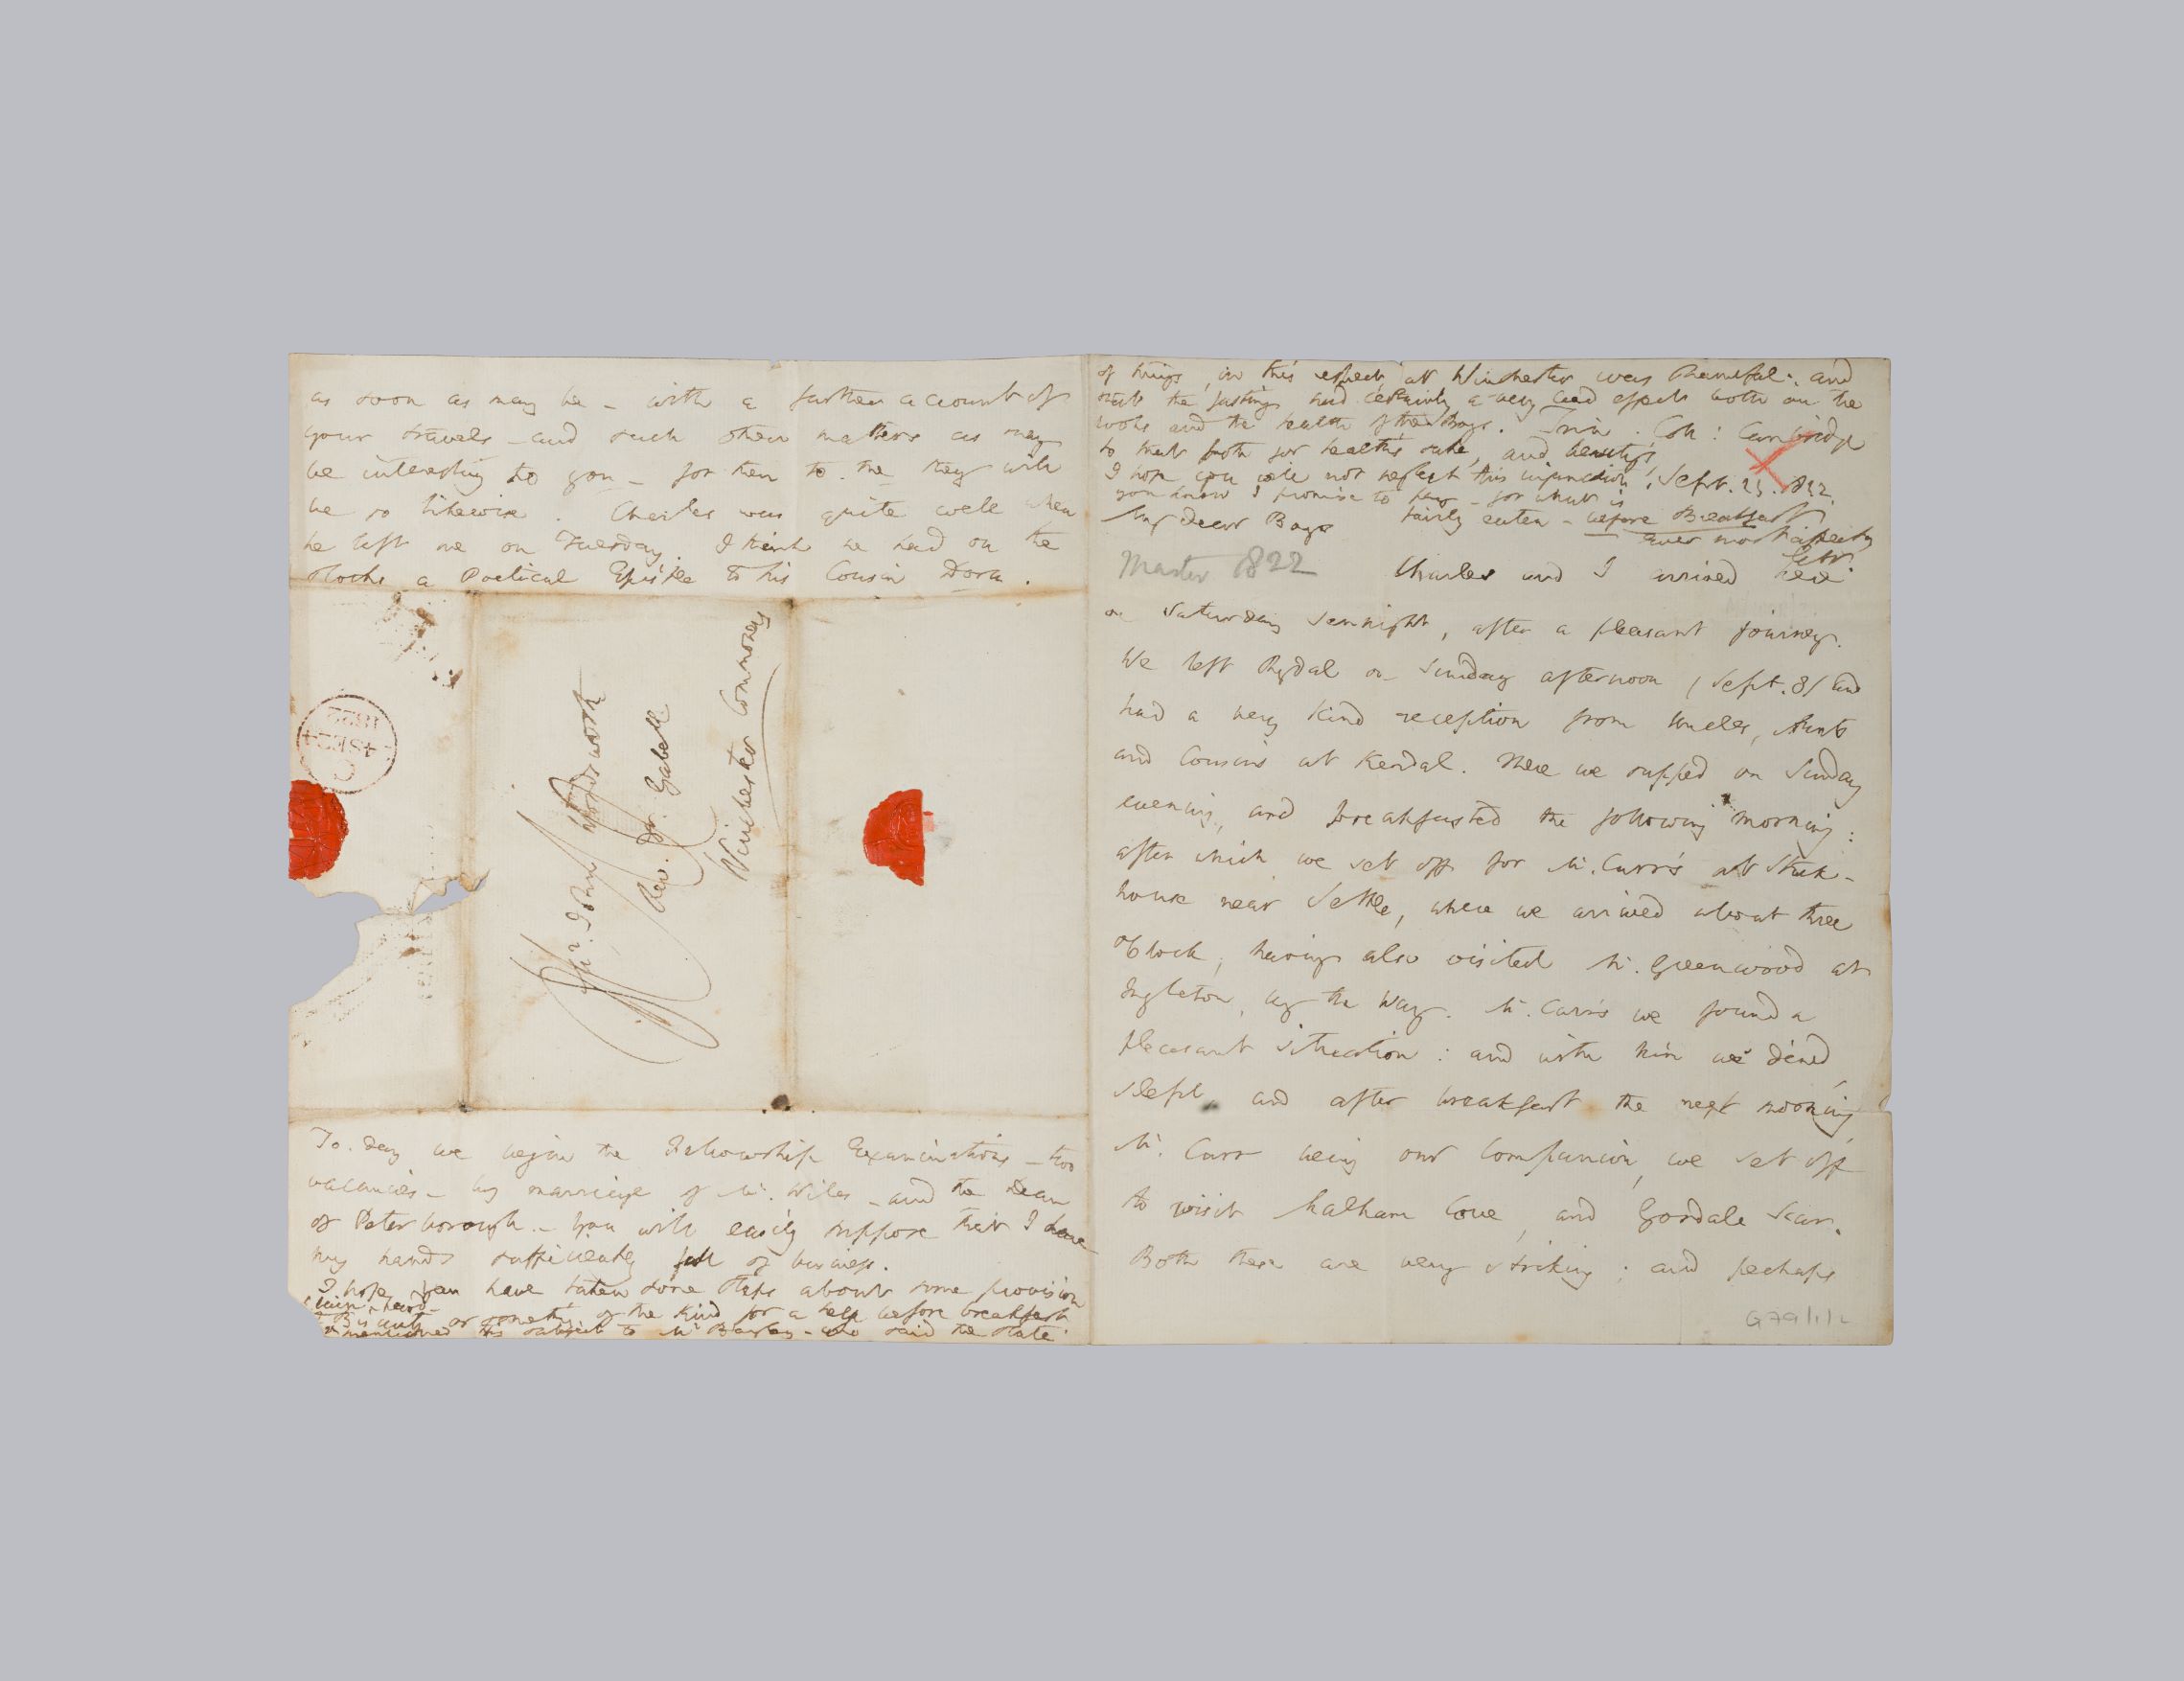 as soon as may be – with a farther account of
your travels – and such other matters as may
be interesting to you – for then to me they will
be so likewise. Charles was quite well when
he left me on Tuesday. I think he had on the
stocks a Poetical Epistle to his Cousin Dora.
1822
SE
Mr. John Wordsworth
Rev. Dr. Gabell
Winchester Commoners
To-day we begin the Fellowship Examinations – two
vacancies – by marriage of Mr. Wiles – and the Dean
of Peterborough – You will easily suppose that I have
my hands sufficiently full of business.
I hope you have taken some steps about some provision
Biscuits or something of the kind for a help before breakfast
mentioned this subject to Mr – who said the state
of things, in this respect, at Winchester was shameful: and
that the fasting had certainly a very bad effect both on the
looks and the health of the Boys. Trin. Coll: Cambridge
so that both for health's sake, and beauty's
I hope you will not neglect this injunction! Sept. 23. 1822.
you know I promise to pay – for what is
My dear Boys fairly eaten – before Breakfast
ever most affectly
CW.
Master 1822 Charles and I arrived here
on Saturday sennight, after a pleasant journey.
We left Rydal on Sunday afternoon (Sept. 8) and
had a very kind reception from Uncles, Aunts
and Cousins at Kendal. There we supped on Sunday
evening, and breakfasted the following morning:
after which we set off for Mr. Carr's at Stack-
house near Settle, where we arrived about three
o'clock, having also visited Mr. Greenwood at
Ingleton, by the way. Mr. Carr's we found a
pleasant situation: and with him we dined,
slept, and after breakfast the next morning,
Mr. Carr being our Companion, we set off
to visit Malham Cove, and Gordale Scar.
Both these are very striking; and perhaps
G79/1/2